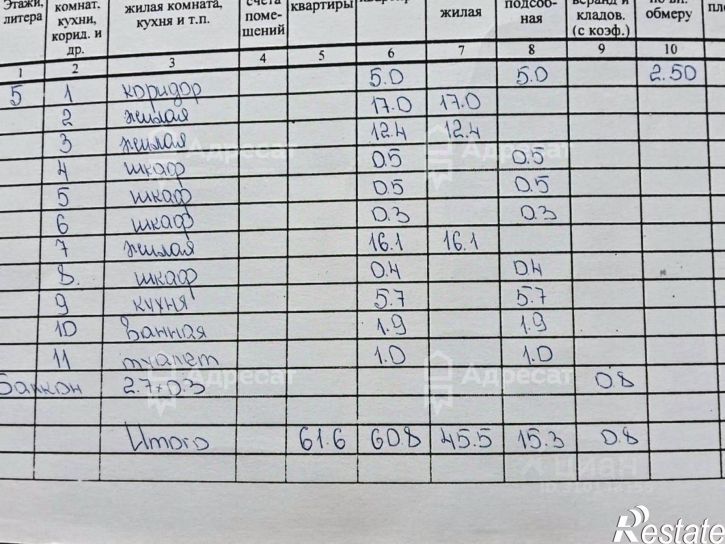 Этажи, литера комнат. кухни, корид. и др. жилая комната, кухня и т.п. счета поме-щений квартиры жилая подсоб-ная веранд и кладов. (с коэф.) по вн. обмеру
1 2 3 4 5 6 7 8 9 10
5 1 коридор 5.0 5.0 2.50
2 жилая 17.0 17.0
3 жилая 12.4 12.4
4 шкаф 0.5 0.5
5 шкаф 0.5 0.5
6 шкаф 0.3 0.3
7 жилая 16.1 16.1
8. шкаф 0.4 0.4
9 кухня 5.7 5.7
10 Ванная 1.9 1.9
11 туалет 1.0 1.0
Балкон 2.7×0.3 0.8
Итого 61.6 60.8 45.5 15.3 0.8
Адресат
Адресат
Адресат
Адресат
циан
Restate